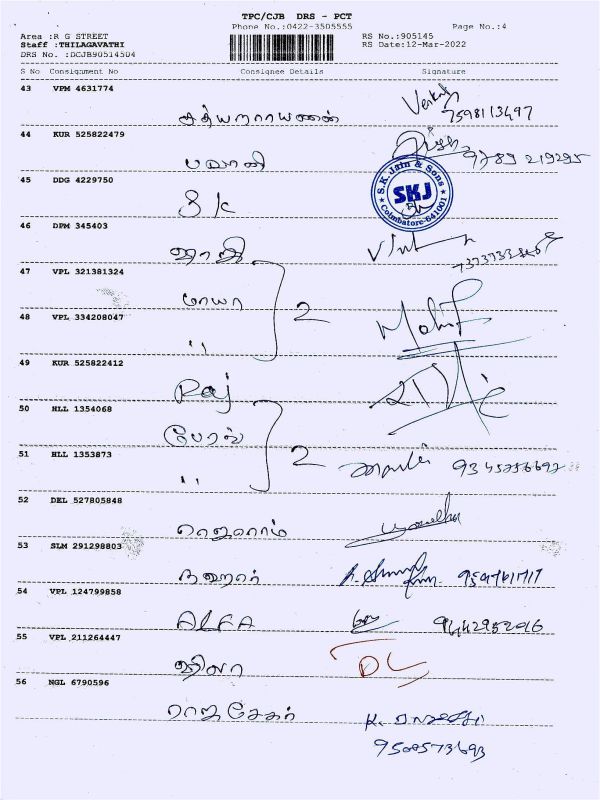 TPC/CJB DRS - PCT
Phone No.:0422-3505555 Page No.:4
Area :R G STREET RS No.:905145
Staff :THILAGAVATHI RS Date:12-Mar-2022
DRS No. :DCJB90514504
S No Consignment No Consignee Details Signature
43 VPM 4631774
சத்யநாராயணன் 7598113497
44 KUR 525822479
பவானி 9789 219295
45 DDG 4229750
S K S.K.Jain & Sons SKJ Coimbatore-641001
46 DPM 345403
ஜாதி
47 VPL 321381324
மாயா 2
48 VPL 334208047
" Mohit
49 KUR 525822412
Raj
50 HLL 1354068
பேரல்
51 HLL 1353873
" 2
52 DEL 527805848
ராஜாராம்
53 SLM 291298803
நஹார்
54 VPL 124799858
ALFA 9442952016
55 VPL 211264447
ஹிமா
56 NGL 6790596
ராஜசேகர்
9500573693